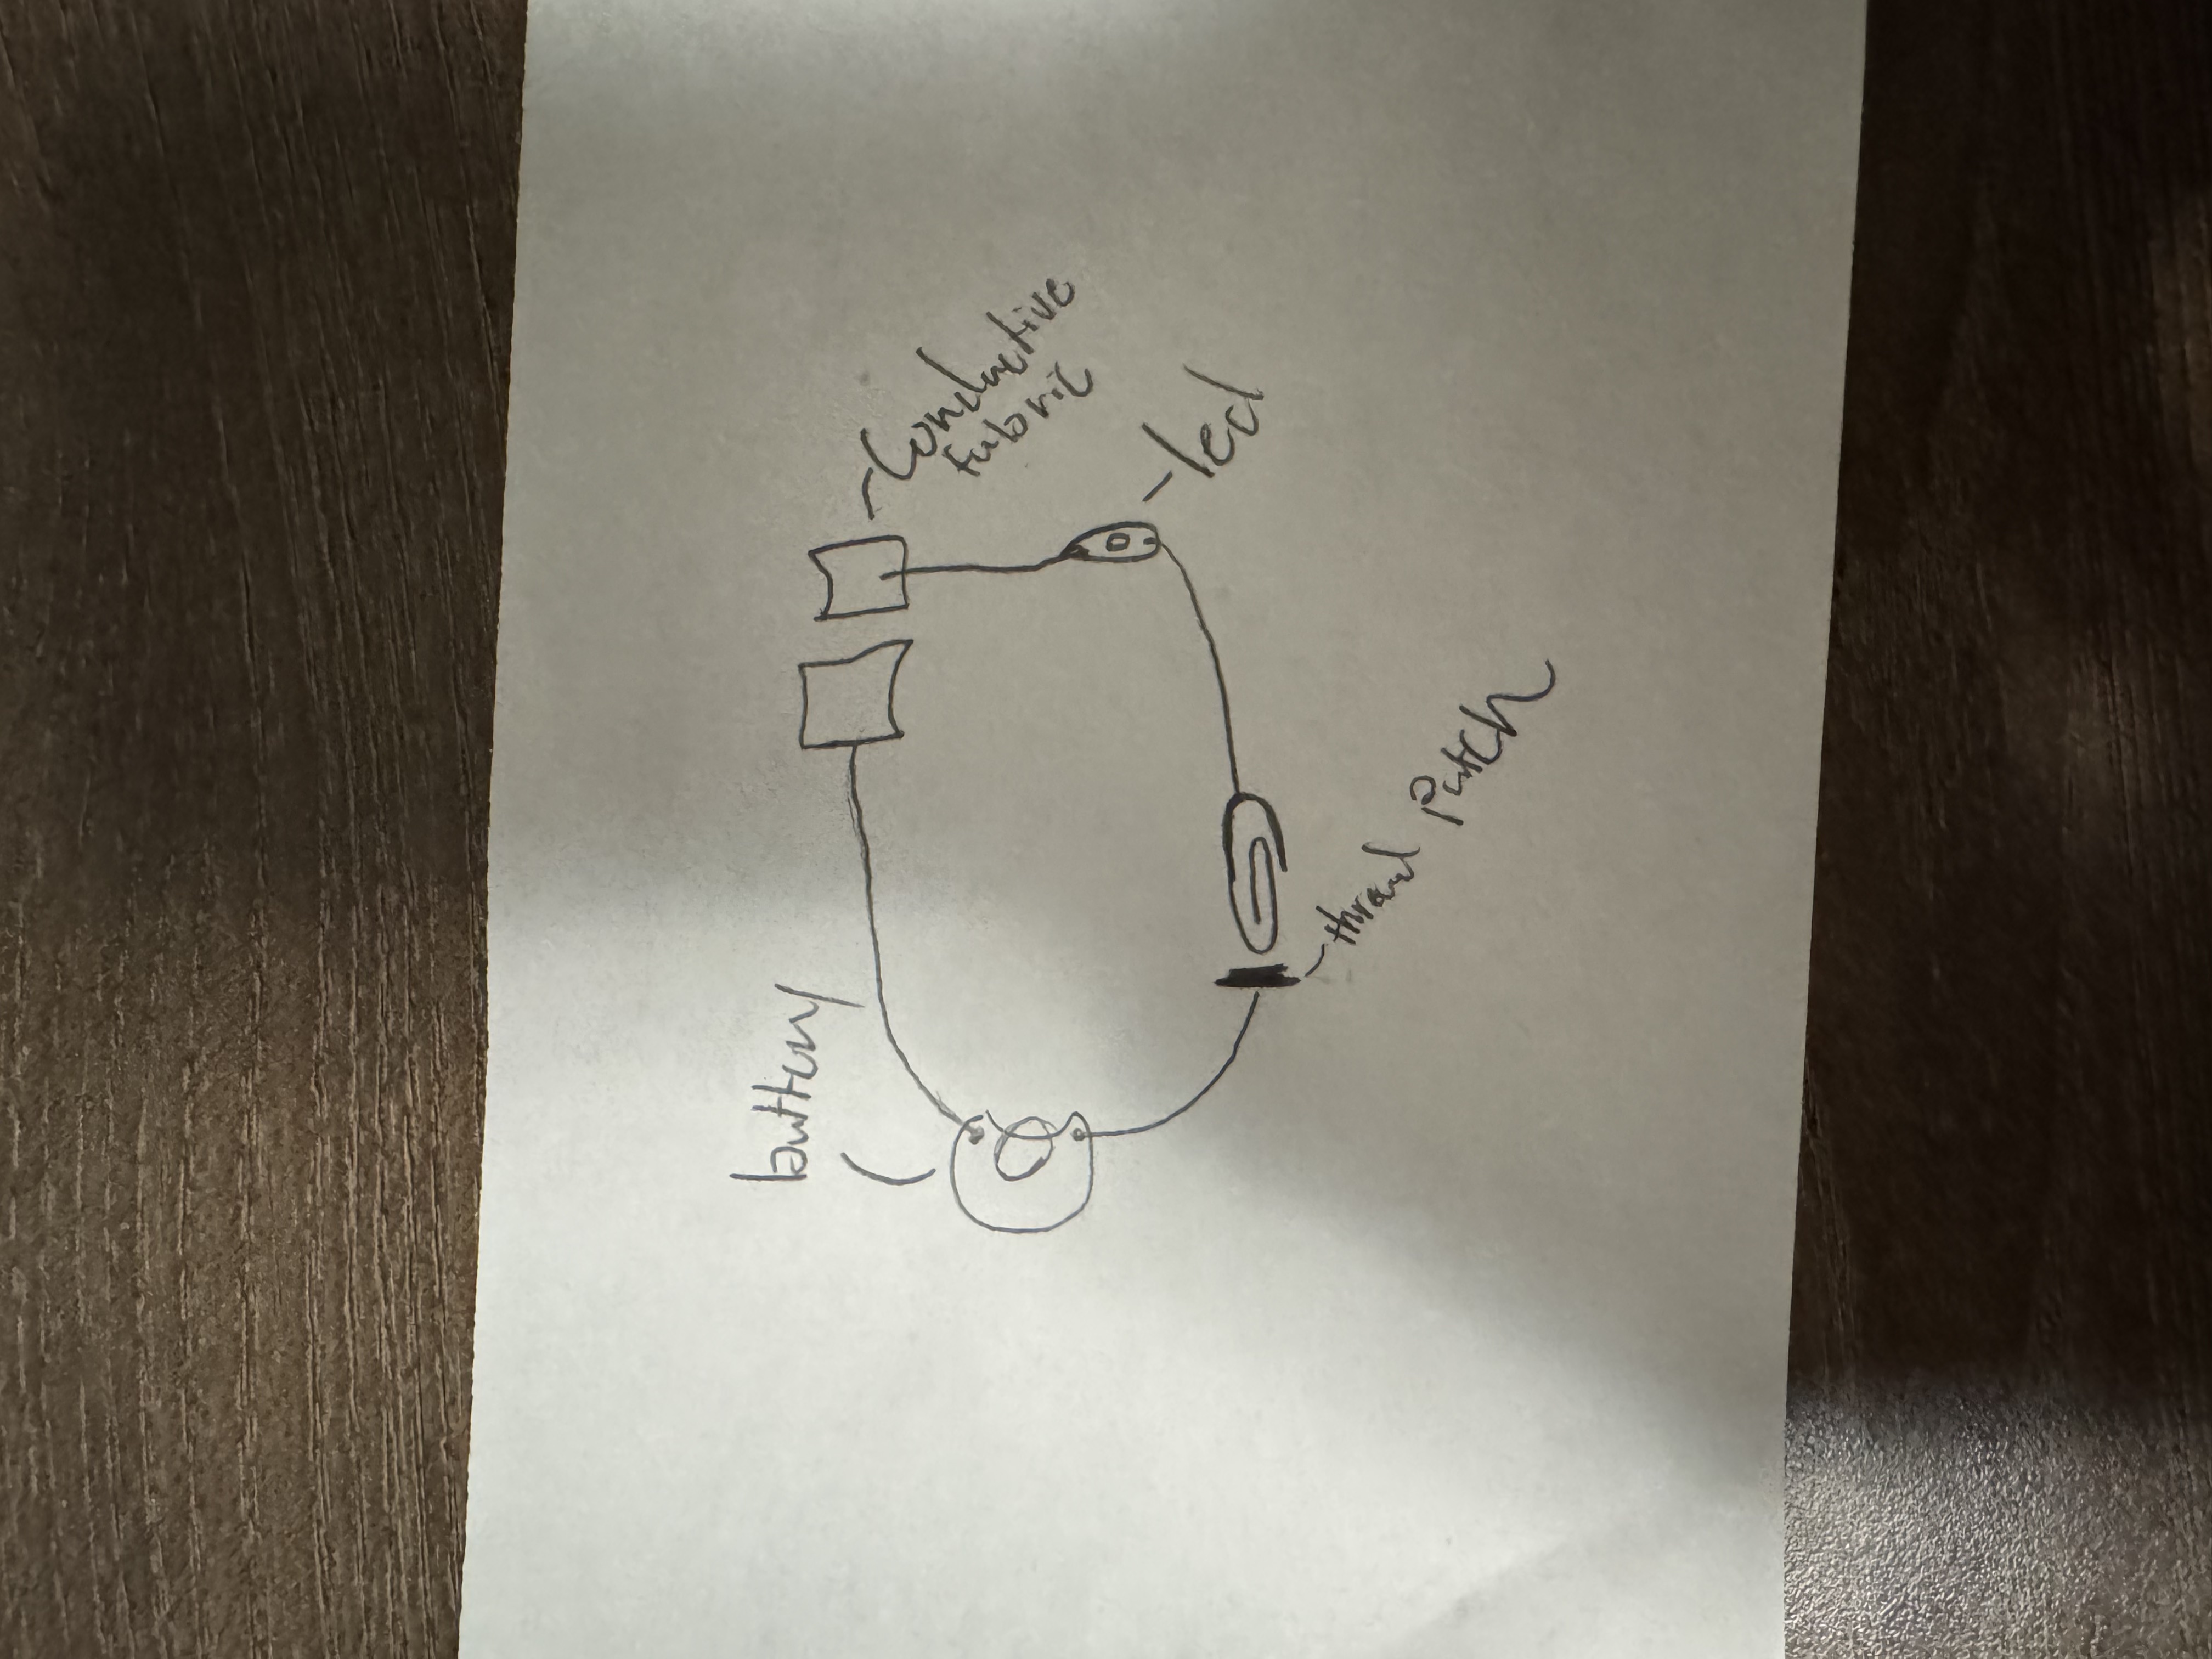 battery
Conductive
fabric
led
thread patch